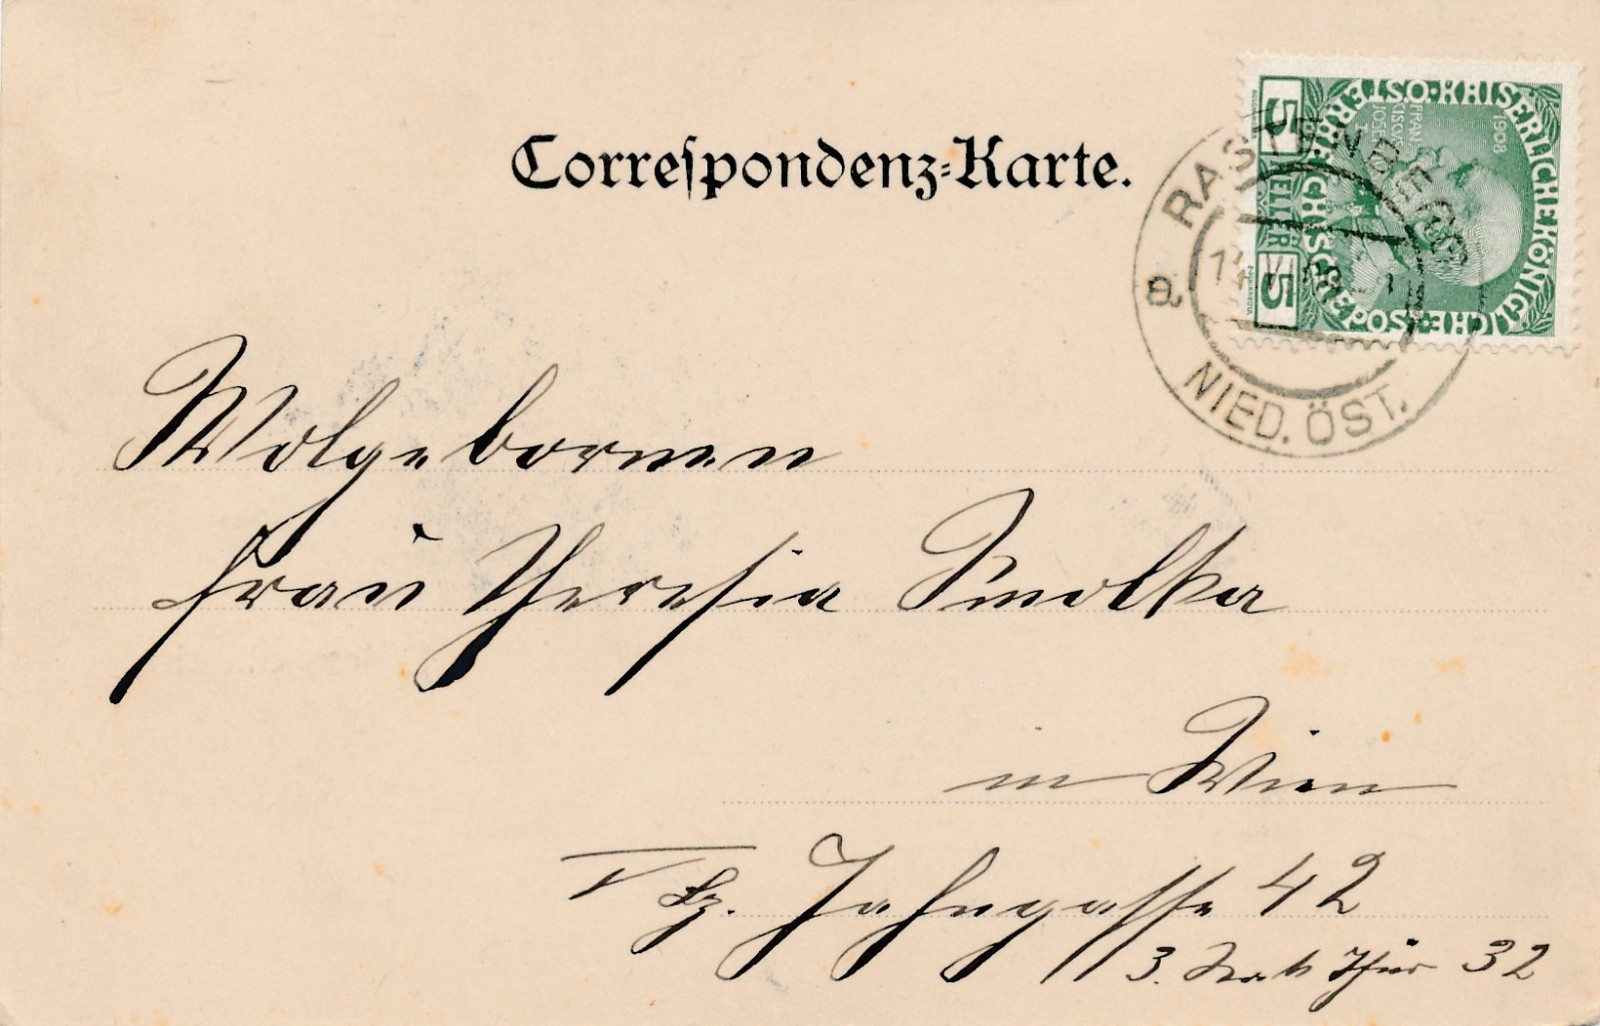 Correſpondenz-Karte.
KAISERLICHE KÖNIGLICHE ÖSTERREICHISCHE POST
1908
FRAN
CISCVS
JOSEF
5 HELLER 5
RASTENBERG
14
a
NIED. ÖST.
Wolgebornen
Frau Theresia Smolka
in Wien
V Bz. Jahngasse 42
3. Stock Thür 32